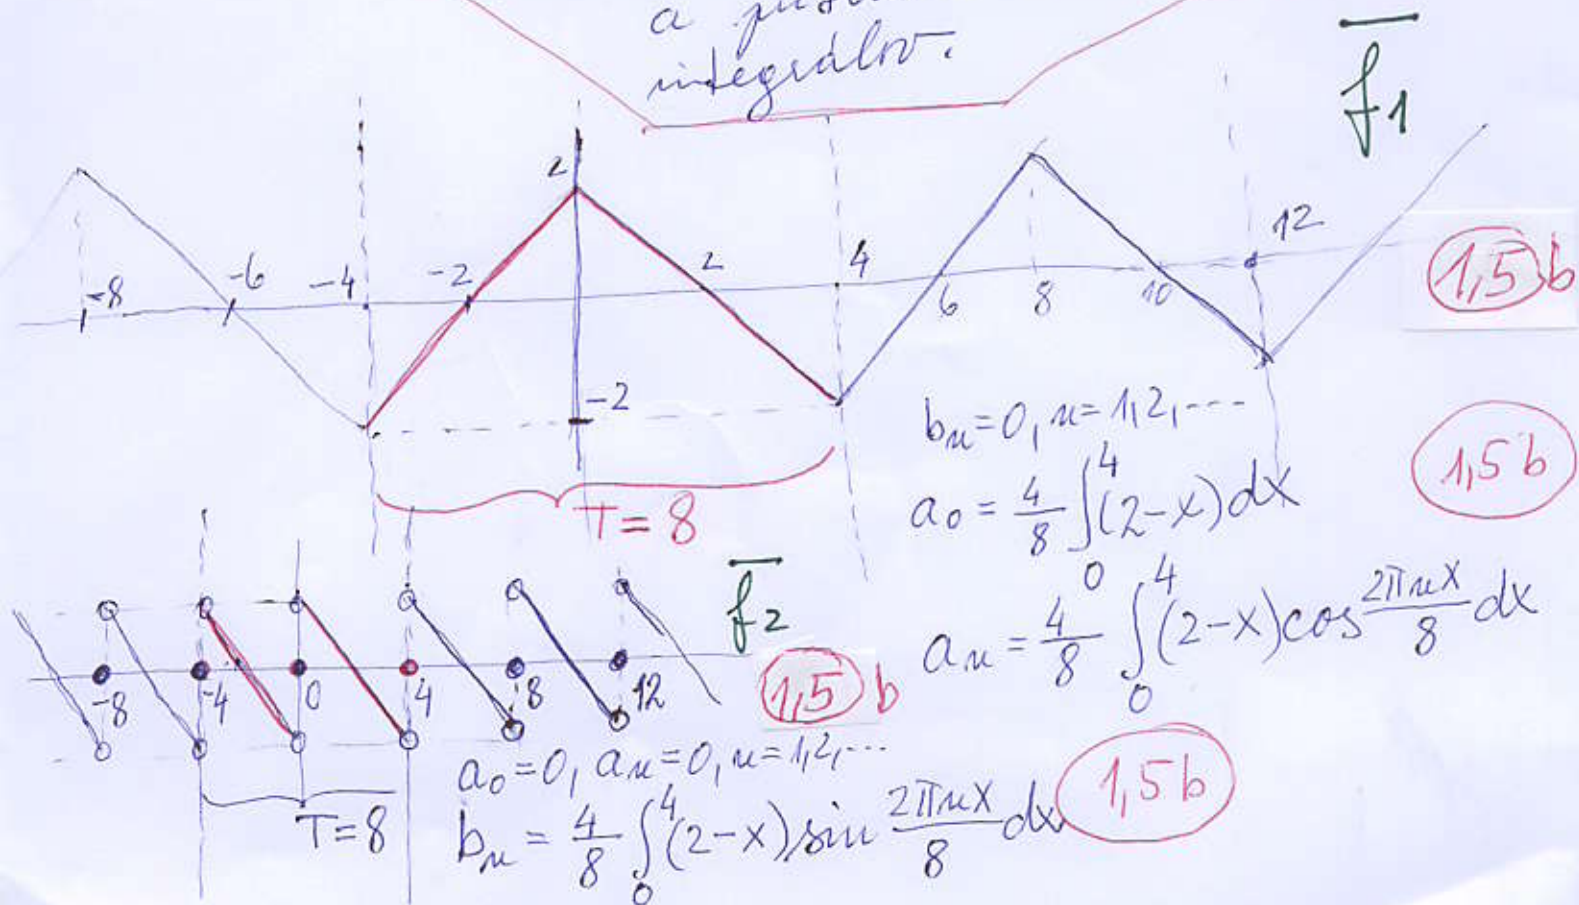 a
integrálov.
f1
2
-8 -6 -4 -2 2 4 6 8 10 12
1,5 b
-2
T = 8
b_n = 0, n = 1, 2, ---
1,5 b
a_0 = \frac{4}{8} \int_0^4 (2-x) dx
a_n = \frac{4}{8} \int_0^4 (2-x) cos \frac{2πnx}{8} dx
f2
-8 -4 0 4 8 12
1,5 b
T = 8
a_0 = 0, a_n = 0, n = 1, 2, ...
b_n = \frac{4}{8} \int_0^4 (2-x) sin \frac{2πnx}{8} dx
1,5 b